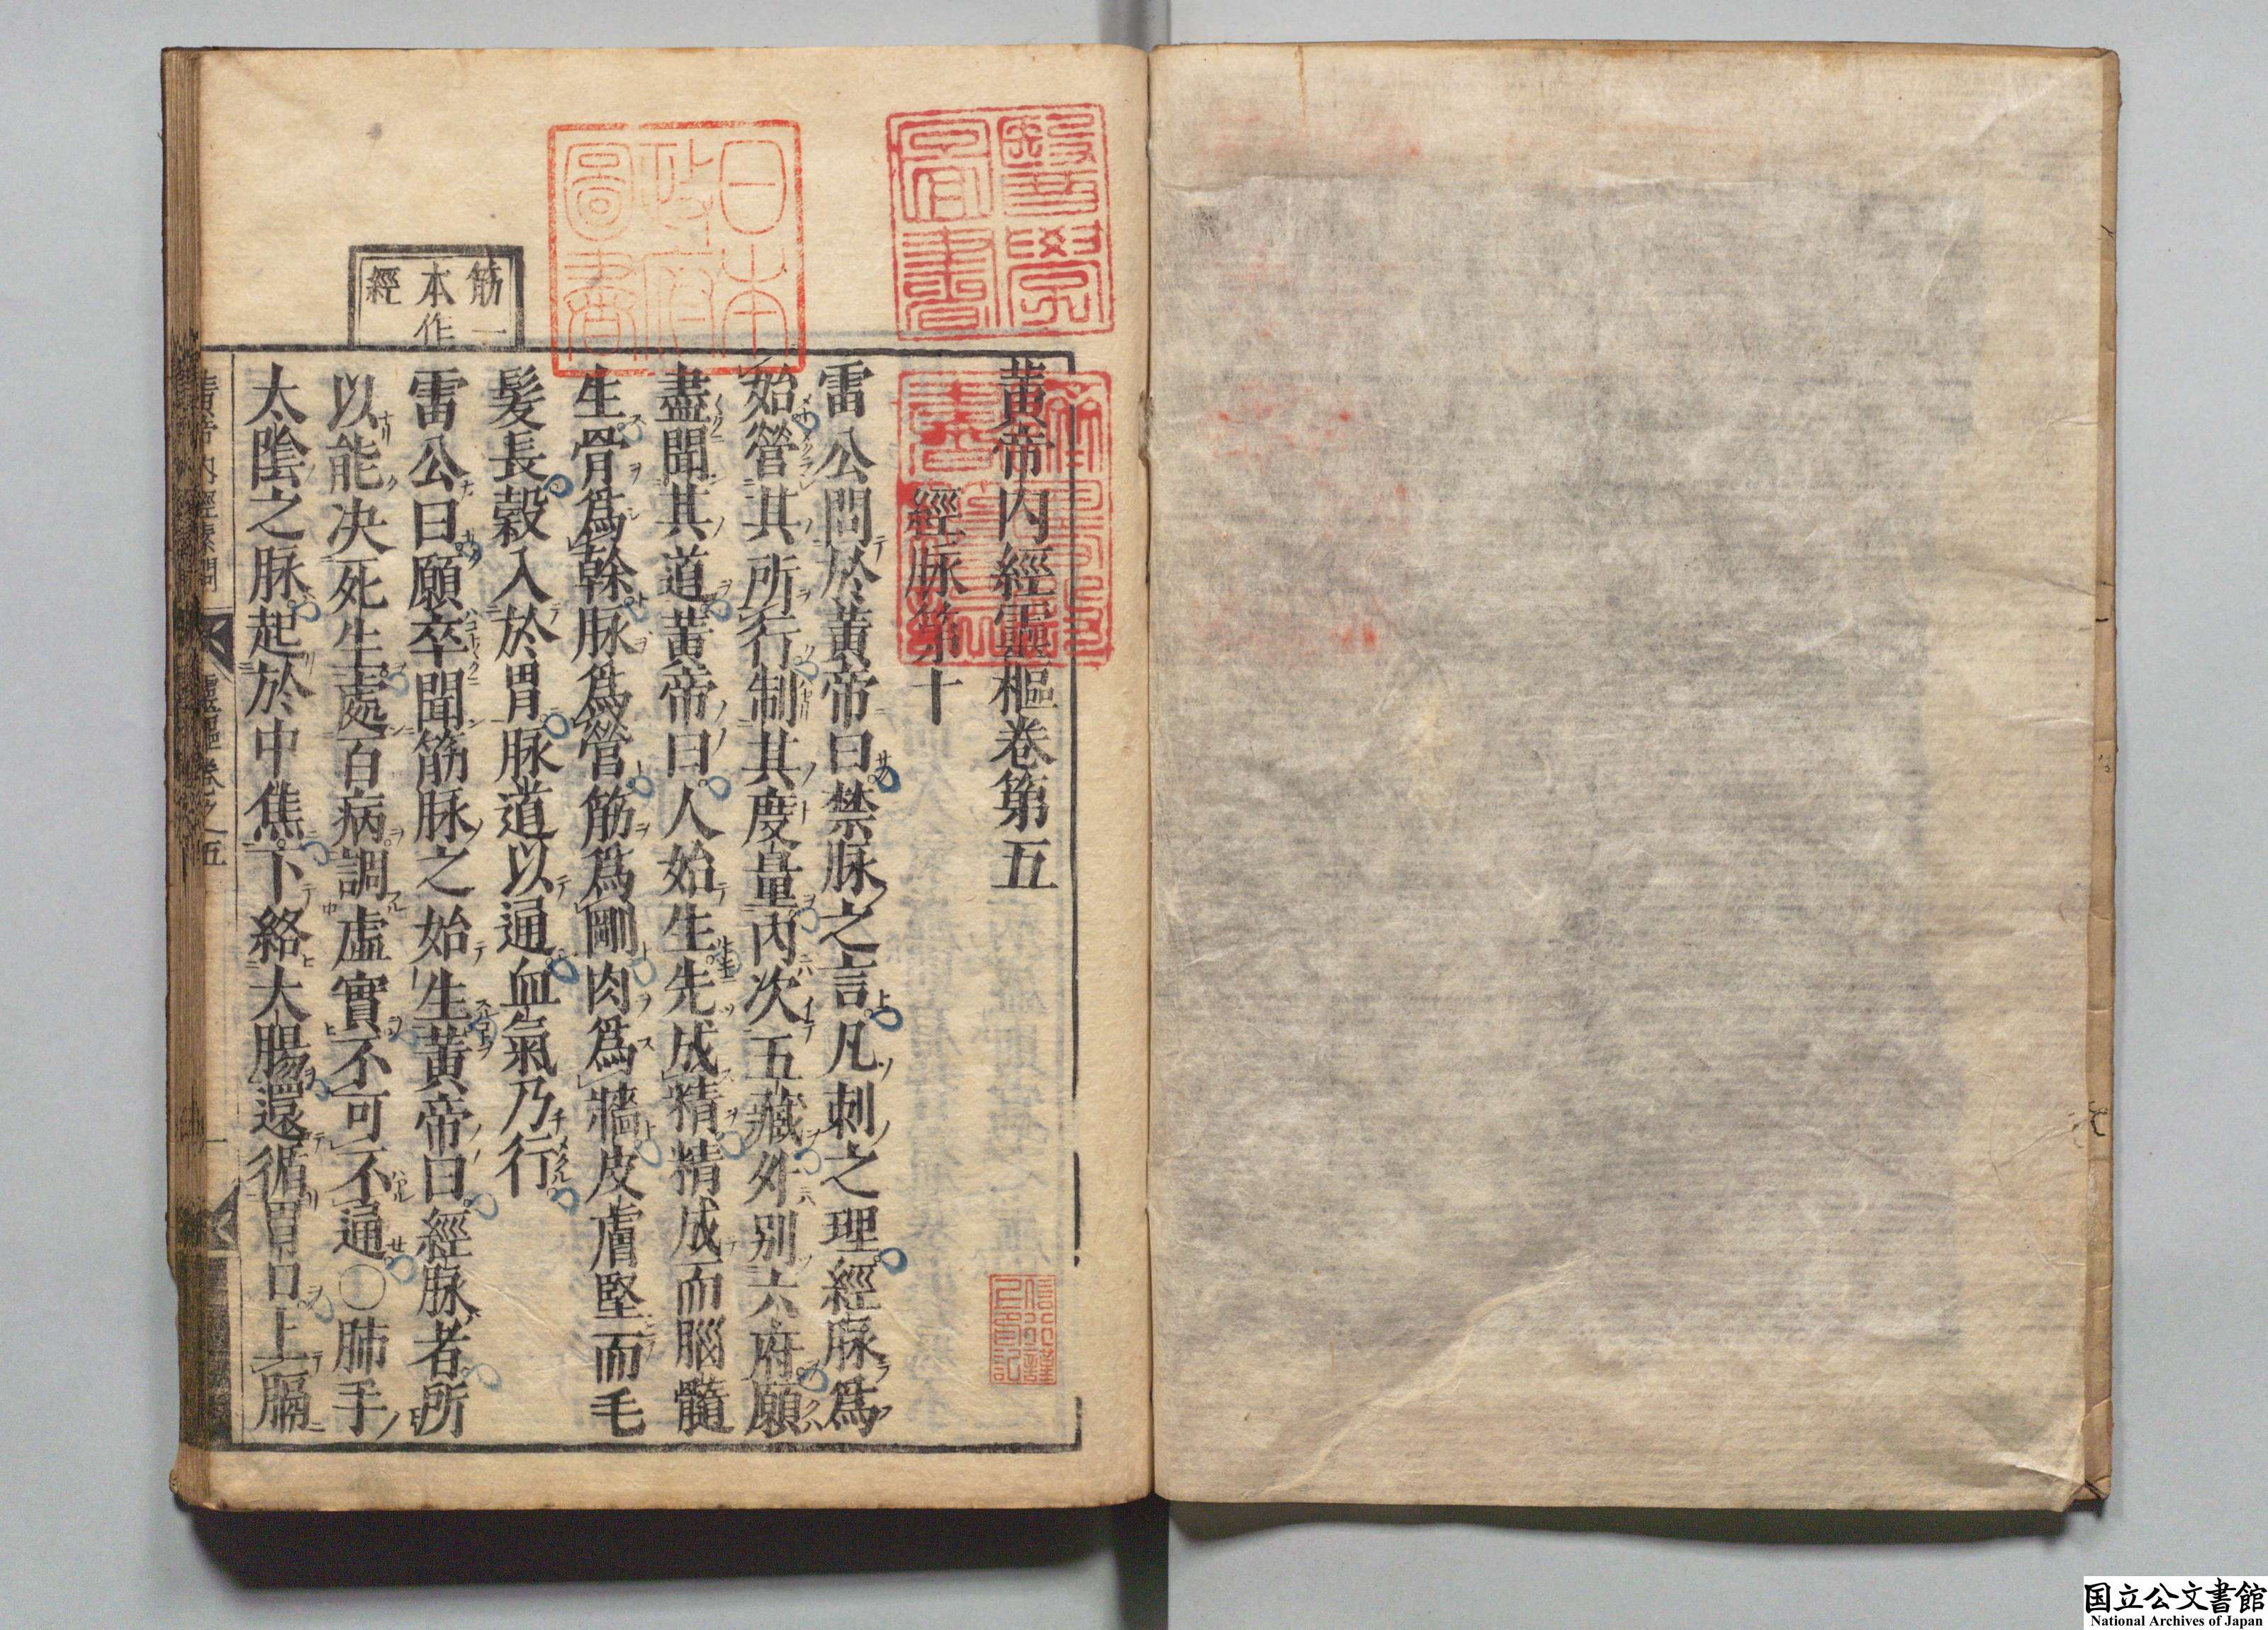 黄帝内經靈樞卷第五
經脉第十
雷公問於黄帝曰禁脉之言凡刺之理經脉爲
始營其所行制其度量内次五藏外別六府願
盡聞其道黄帝曰人始生先成精精成而腦髓
生骨爲幹脉爲營筋爲剛肉爲牆皮膚堅而毛
髮長穀入於胃脉道以通血氣乃行
雷公曰願卒聞筋脉之始生黄帝曰經脉者所
以能决死生處百病調虚實不可不通○肺手
太陰之脉起於中焦下絡大腸還循胃口上膈
筋一
本作
經
黄帝内經素問
靈樞卷之五
一
醫學
圖書
日本
政府
圖書
国立公文書館
National Archives of Japan